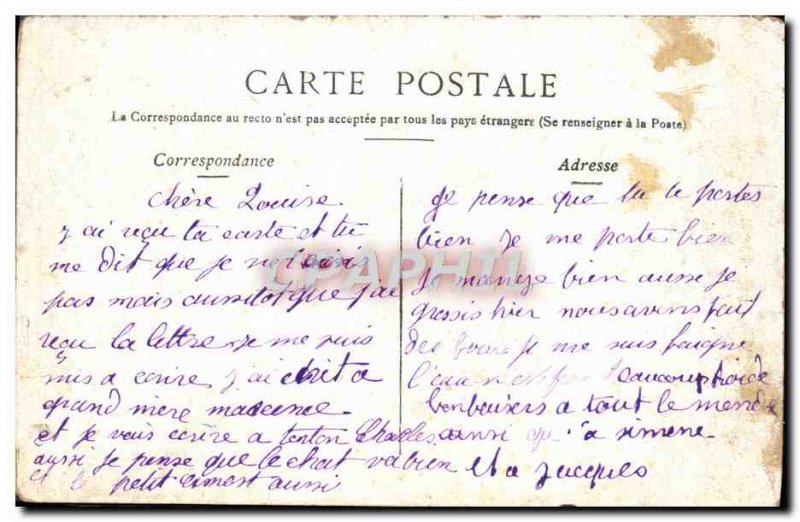 CARTE POSTALE
La Correspondance au recto n'est pas acceptée par tous les pays étrangers (Se renseigner à la Poste)
Correspondance
chère Louise
j ai reçu ta carte et tu
me dit que je n'écris
pas mais aussitot que j'ai
reçu la lettre je me suis
mis a écrire j'ai écrit a
grand mère
et je vais écrire a tonton Charles
aussi je pense que le chat va bien
et le petit aussi
Adresse
je pense que tu te portes
bien je me porte bien
je mange bien aussi je
grossis hier nous avons fait
des je me suis baigné
l'eau beaucoup froide
bon baisers a tout le monde
ainsi qu'a simene
et a jacques
CPAPHIL